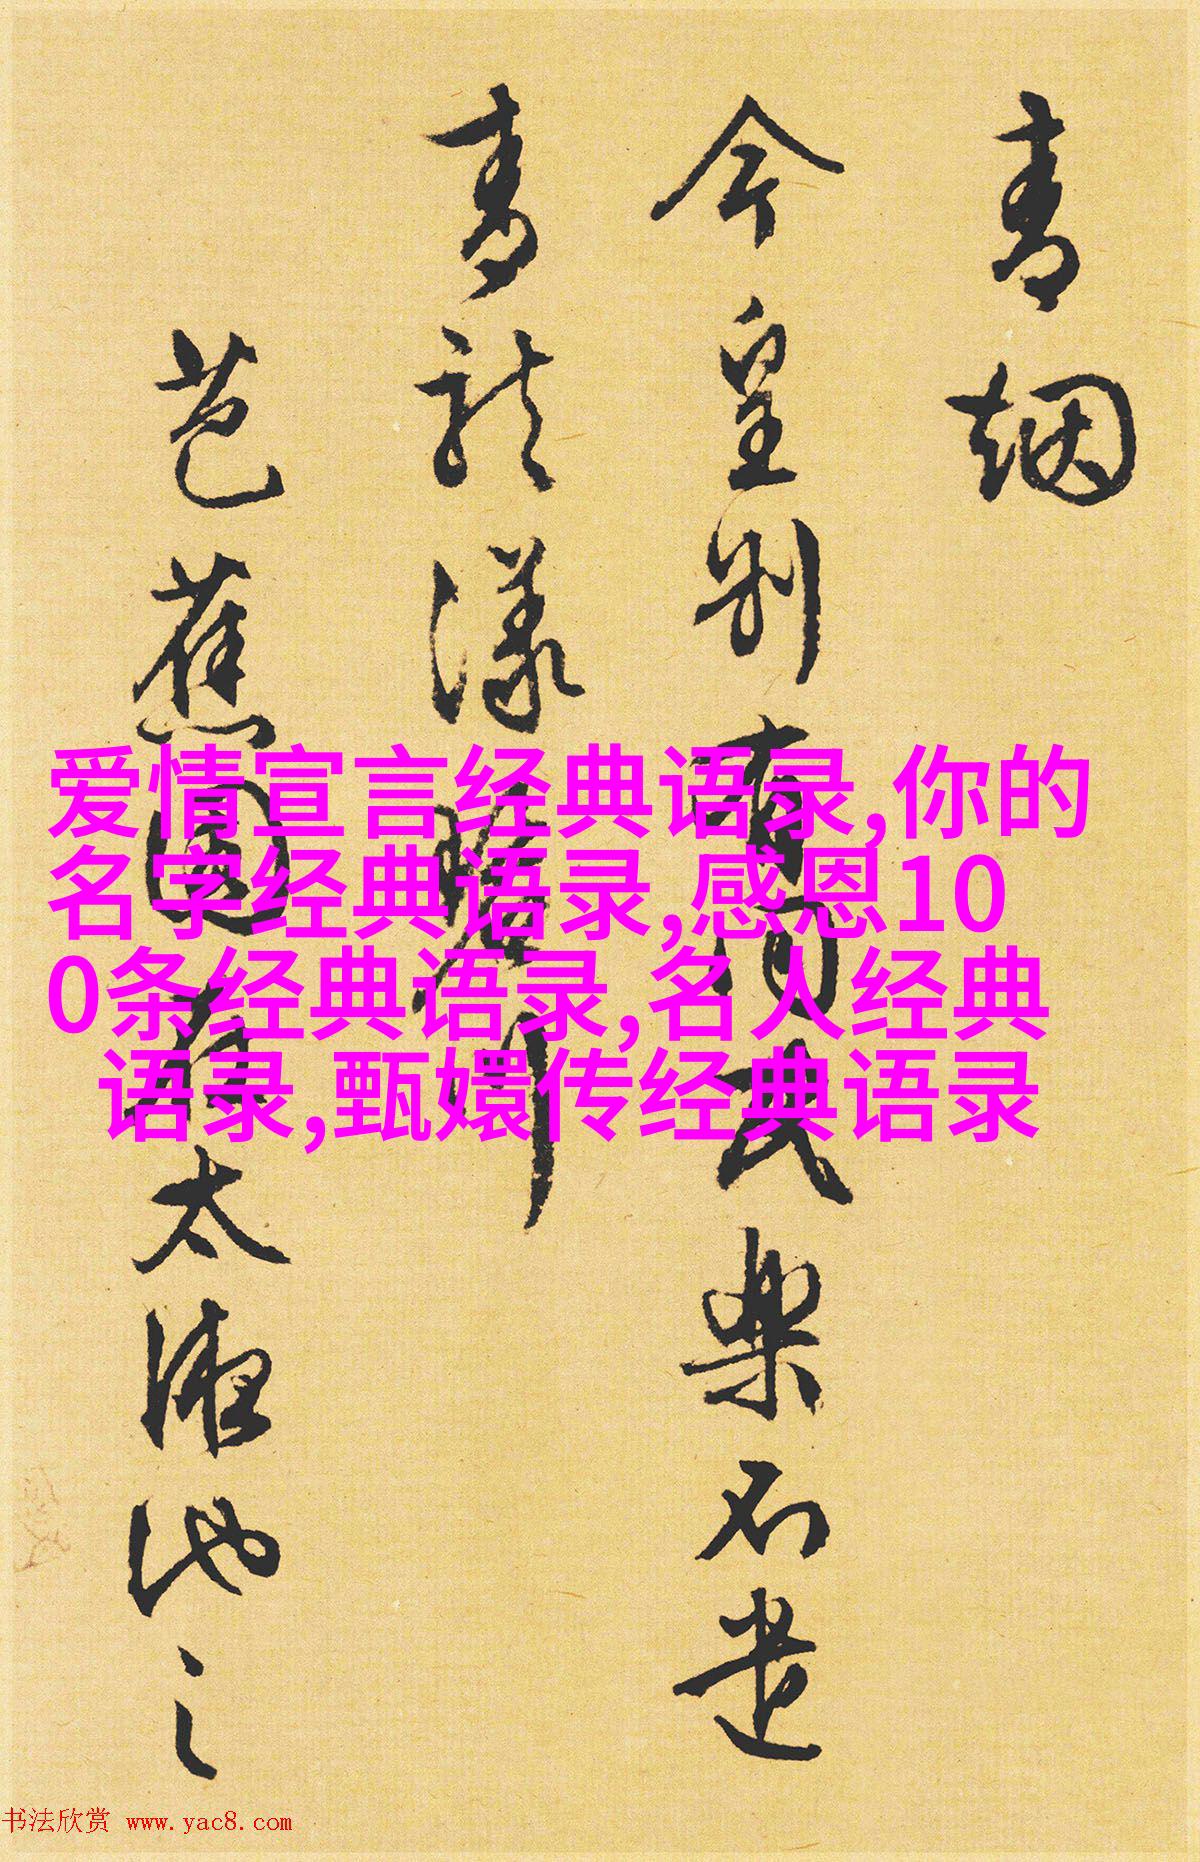 青烟
今皇别
樂石
青龍漾川
芭蕉園在太液池之
爱情宣言经典语录,你的
名字经典语录,感恩10
0条经典语录,名人经典
语录,甄嬛传经典语录
书法欣赏 www.yac8.com